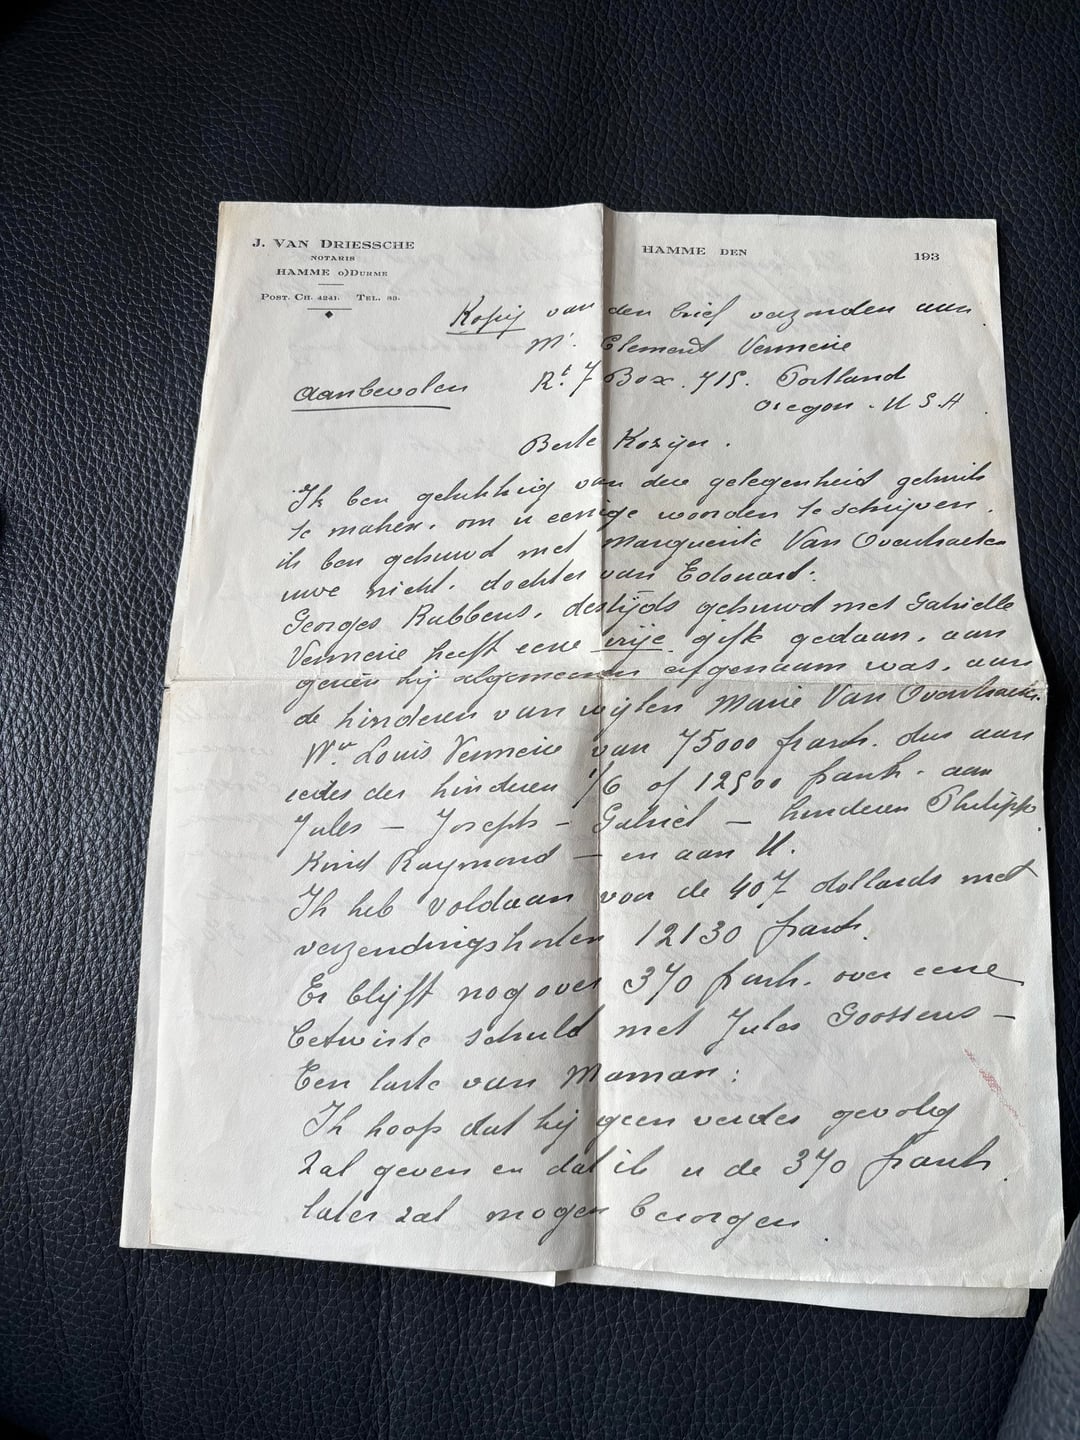 J. VAN DRIESSCHE
NOTARIS
HAMME O/DURME
POST. CH. 4241. TEL. 83.
HAMME DEN 193
Kopij van den brief verzonden aan
Mr. Clement Vermeire
Aanbevolen Rt. 7 Box. 715. Portland
Oregon. U S A.
Beste Kozijn.
Ik ben gelukkig van deze gelegenheid gebruik
te maken. om u eenige woorden te schrijven.
ik ben gehuwd met Marguerite Van Overstraeten
uwe nicht. dochter van Edouard.
Georges Rubbens. destijds gehuwd met Gabrielle
Vermeire heeft eene vrije gifte gedaan. aan
gezien hij algemeenen erfgenaam was. aan
de kinderen van wijlen Marie Van Overstraeten
We. Louis Vermeire van 75000 frank. dus aan
ieder der kinderen 1/6 of 12500 frank. aan
Jules — Joseph — Gabriel — kinderen Philippe.
Kind Raymond — en aan U.
Ik heb voldaan voor de 407 dollards met
verzendingskosten 12130 frank.
Er blijft nog over 370 frank. over eene
betwiste schuld met Jules Goossens —
Een laste van Maman:
Ik hoop dat hij geen verder gevolg
zal geven en dat ik u de 370 frank.
later zal mogen bezorgen.